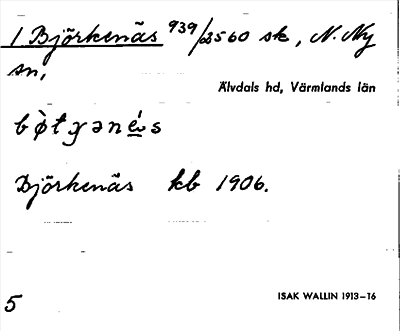 1 Björkenäs 939/2560 sk, N. Ny
sn,
Älvdals hd, Värmlands län
Björkenäs kb 1906.
5
ISAK WALLIN 1913–16